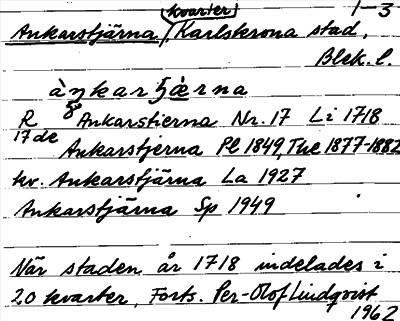 kvarter 1-3
Ankarstjärna, Karlskrona stad,
Blek. l.
àŋkarʃæ̀rna
R 8 Ankarstierna Nr. 17 Li 1718
17 de Ankarstjerna Pl 1849, The 1877-1882
kv. Ankarstjärna La 1927
Ankarstjärna Sp 1949
När staden år 1718 indelades i
20 kvarter, Forts. Per-Olof Lindqvist
1962